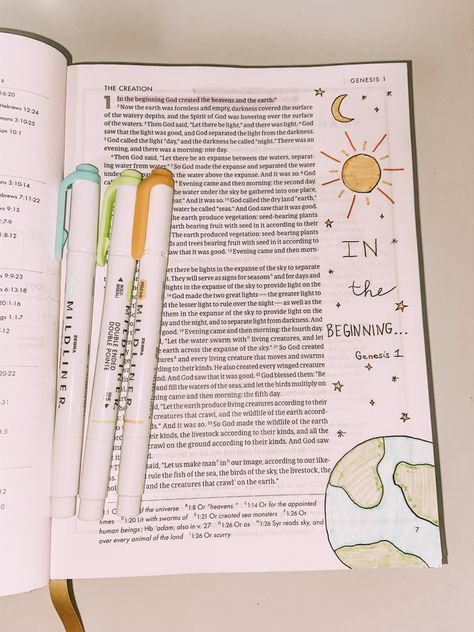 16:20
Hebrews 12:24
mans 3:10-25
tion 10:1
3:10-14
7:1-12
2:7-9
1:8
9:9-23
3:1-6
20:1
1:8
3:14
GENESIS 1
THE CREATION
1 In the beginning God created the heavens and the earth.
² Now the earth was formless and empty, darkness covered the surface
of the watery depths, and the Spirit of God was hovering over the surface
of the waters. ³ Then God said, "Let there be light," and there was light. ⁴ God
saw that the light was good, and God separated the light from the darkness.
⁵ God called the light "day," and the darkness he called "night." There was an
evening, and there was a morning: one day.
⁶ Then God said, "Let there be an expanse between the waters, separat-
ing water from water." ⁷ So God made the expanse and separated the water
water above the expanse. And it was so. ⁸ God
Evening came and then morning: the second day.
the water under the sky be gathered into one place,
ear." And it was so. ¹⁰ God called the dry land "earth,"
water he called "seas." And God saw that it was good.
earth produce vegetation: seed-bearing plants
earth bearing fruit with seed in it according to
earth produced vegetation: seed-bearing plants
and trees bearing fruit with seed in it according to
it was good. ¹³ Evening came and then morn-
there be lights in the expanse of the sky to separate
They will serve as signs for seasons and for days and
lights in the expanse of the sky to provide light on the
God made the two great lights — the greater light to
the lesser light to rule over the night — as well as the
in the expanse of the sky to provide light on the
day and the night, and to separate light from darkness. And
good. ¹⁹ Evening came and then morning: the fourth day.
"Let the water swarm with living creatures, and let
earth across the expanse of the sky." ²¹ So God created
and every living creature that moves and swarms
to their kinds. He also created every winged creature
And God saw that it was good. ²² God blessed them: "Be
and fill the waters of the seas, and let the birds multiply on
came and then morning: the fifth day.
"Let the earth produce living creatures according to
that crawl, and the wildlife of the earth accord-
And it was so. ²⁵ So God made the wildlife of the earth
their kinds, the livestock according to their kinds, and all the
crawl on the ground according to their kinds. And God saw
said, "Let us make man in our image, according to our like-
rule the fish of the sea, the birds of the sky, the livestock, the
and the creatures that crawl on the earth."
the universe 1:8 Or "heavens." 1:14 Or for the appointed
times 1:20 Lit with swarms of 1:21 Or created sea monsters 1:26 Or
human beings; Hb 'adam, also in v. 27 1:26 Or as 1:26 Syr reads sky, and
over every animal of the land 1:26 Or scurry
7
IN
the
BEGINNING...
Genesis 1
ZEBRA
MILDLINER
ZEBRA
MILDLINER
DOUBLE ENDED
DOUBLE POINTE
MILDLINER